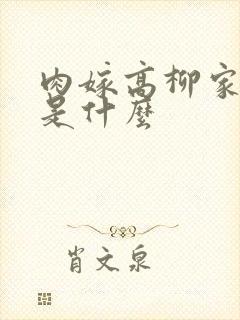 肉嫁高柳家
是什麼
肖文泉